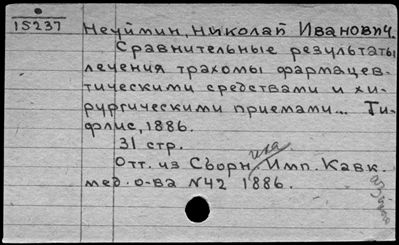 15237
Неуймин, Николай Иванович.
Сравнительные результаты
лечения трахомы фармацев-
тическими средствами и хи-
рургическими приемами... Ти-
флис, 1886.
31 стр.
Отт. из Сборн. Имп. Кавк.
мед. о-ва №42 1886.